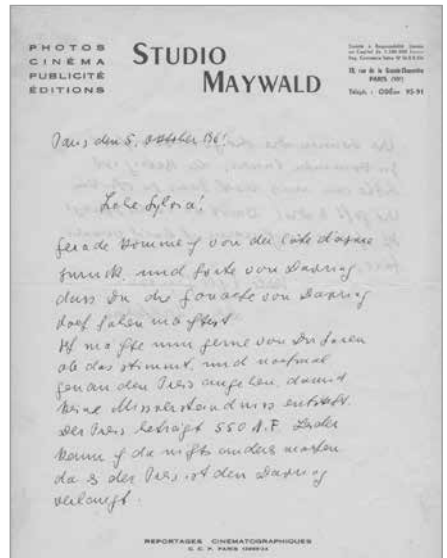 PHOTOS
CINÉMA
PUBLICITÉ
ÉDITIONS
STUDIO
MAYWALD
PARIS (VIe)
Téléph. : ODÉon 95-91
Paris den 5. Oktober 61
Liebe Sylvia!
gerade komme ich von der Côte d'Azur
zurück und hörte von Dahring
dass Du die Gouache von Dahring
doch haben möchtest
Ich möchte nun gerne von Dir hören
ob das stimmt, und nochmal
genau den Preis angeben, damit
keine Missverständniss entsteht.
Der Preis beträgt 550 N.F. Leider
kann ich da nichts anders machen
da es der Preis ist den
verlangt.
REPORTAGES CINÉMATOGRAPHIQUES
C. C. P. PARIS